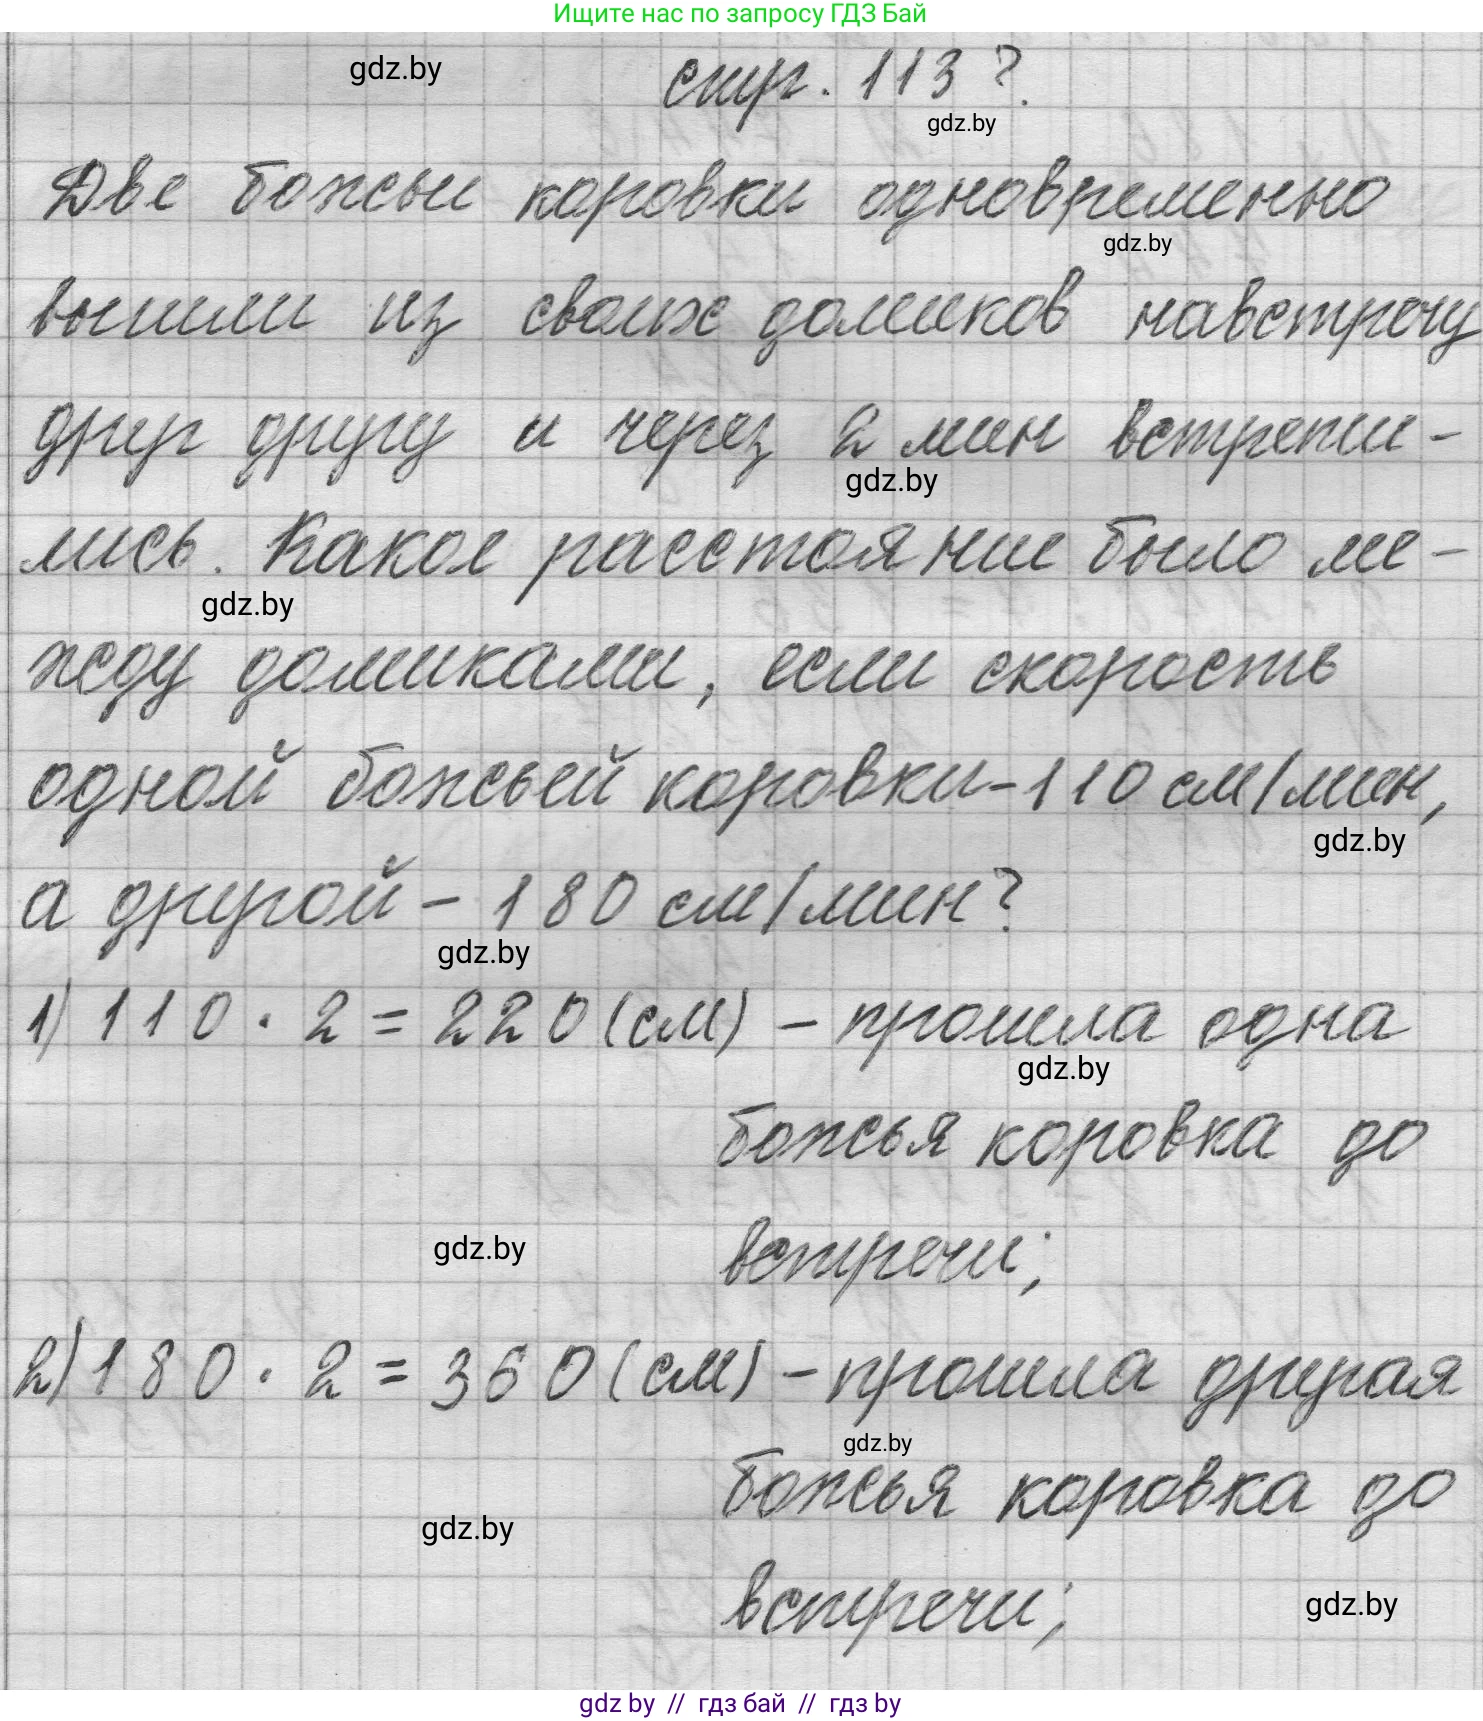 Ищите нас по запросу ГДЗ Бай
gdz.by
стр. 113 ?.
gdz.by
Две божьи коровки одновременно
gdz.by
вышли из своих домиков навстречу
друг другу и через 2 мин встрети-
gdz.by
лись. Какое расстояние было ме-
gdz.by
жду домиками, если скорость
одной божьей коровки - 110 см/мин,
gdz.by
а другой - 180 см/мин?
gdz.by
1) 110 · 2 = 220 (см) - прошла одна
gdz.by
божья коровка до
встречи;
gdz.by
2) 180 · 2 = 360 (см) - прошла другая
gdz.by
божья коровка до
gdz.by
встречи;
gdz.by
gdz by // гдз бай // гдз by